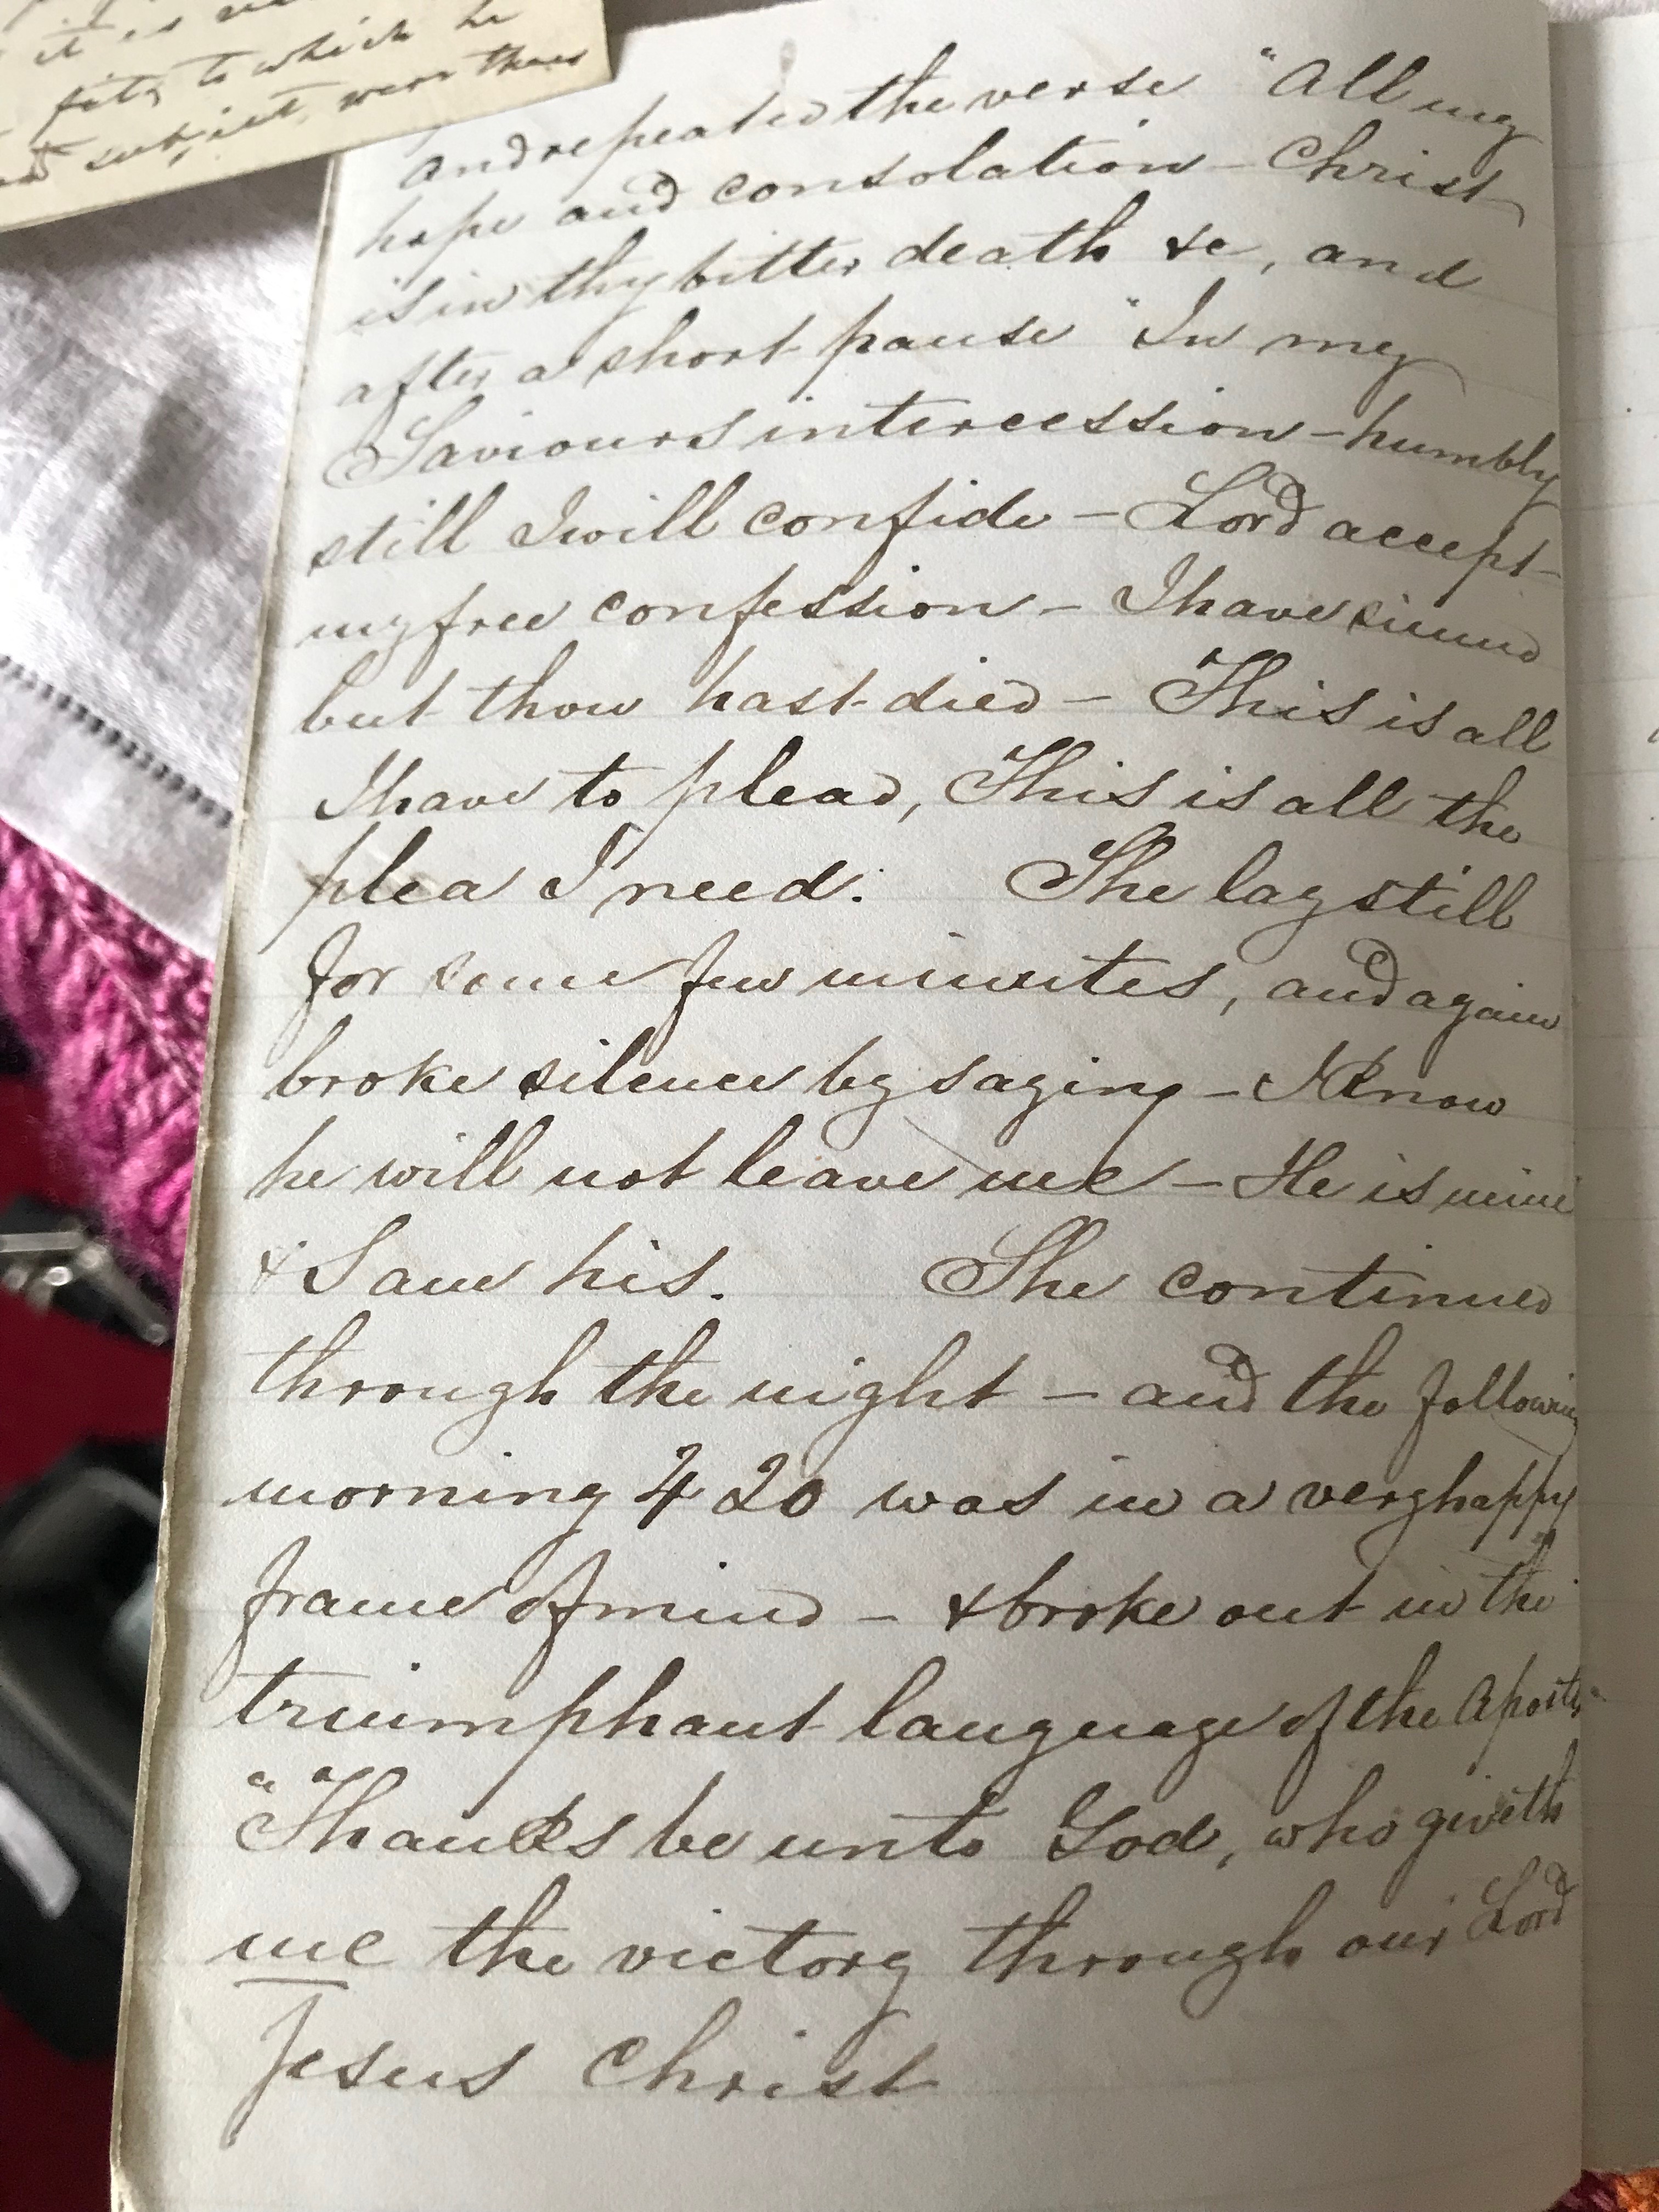 it is
fity to which he
and subject, were thus
and repeated the verse "All my
hope and consolation – Christ
is in thy bitter death &c, and
after a short pause "In my
Saviours intercession – humbly
still I will confide – Lord accept
my free confession – I have sinned
but thou hast died – This is all
I have to plead, This is all the
plea I need. She lay still
for some few minutes, and again
broke silence by saying – I know
he will not leave me – He is mine
& I am his. She continued
through the night – and the following
morning 4 20 was in a very happy
frame of mind – & broke out in the
triumphant language of the Apostle
"Thanks be unto God, who giveth
me the victory through our Lord
Jesus Christ